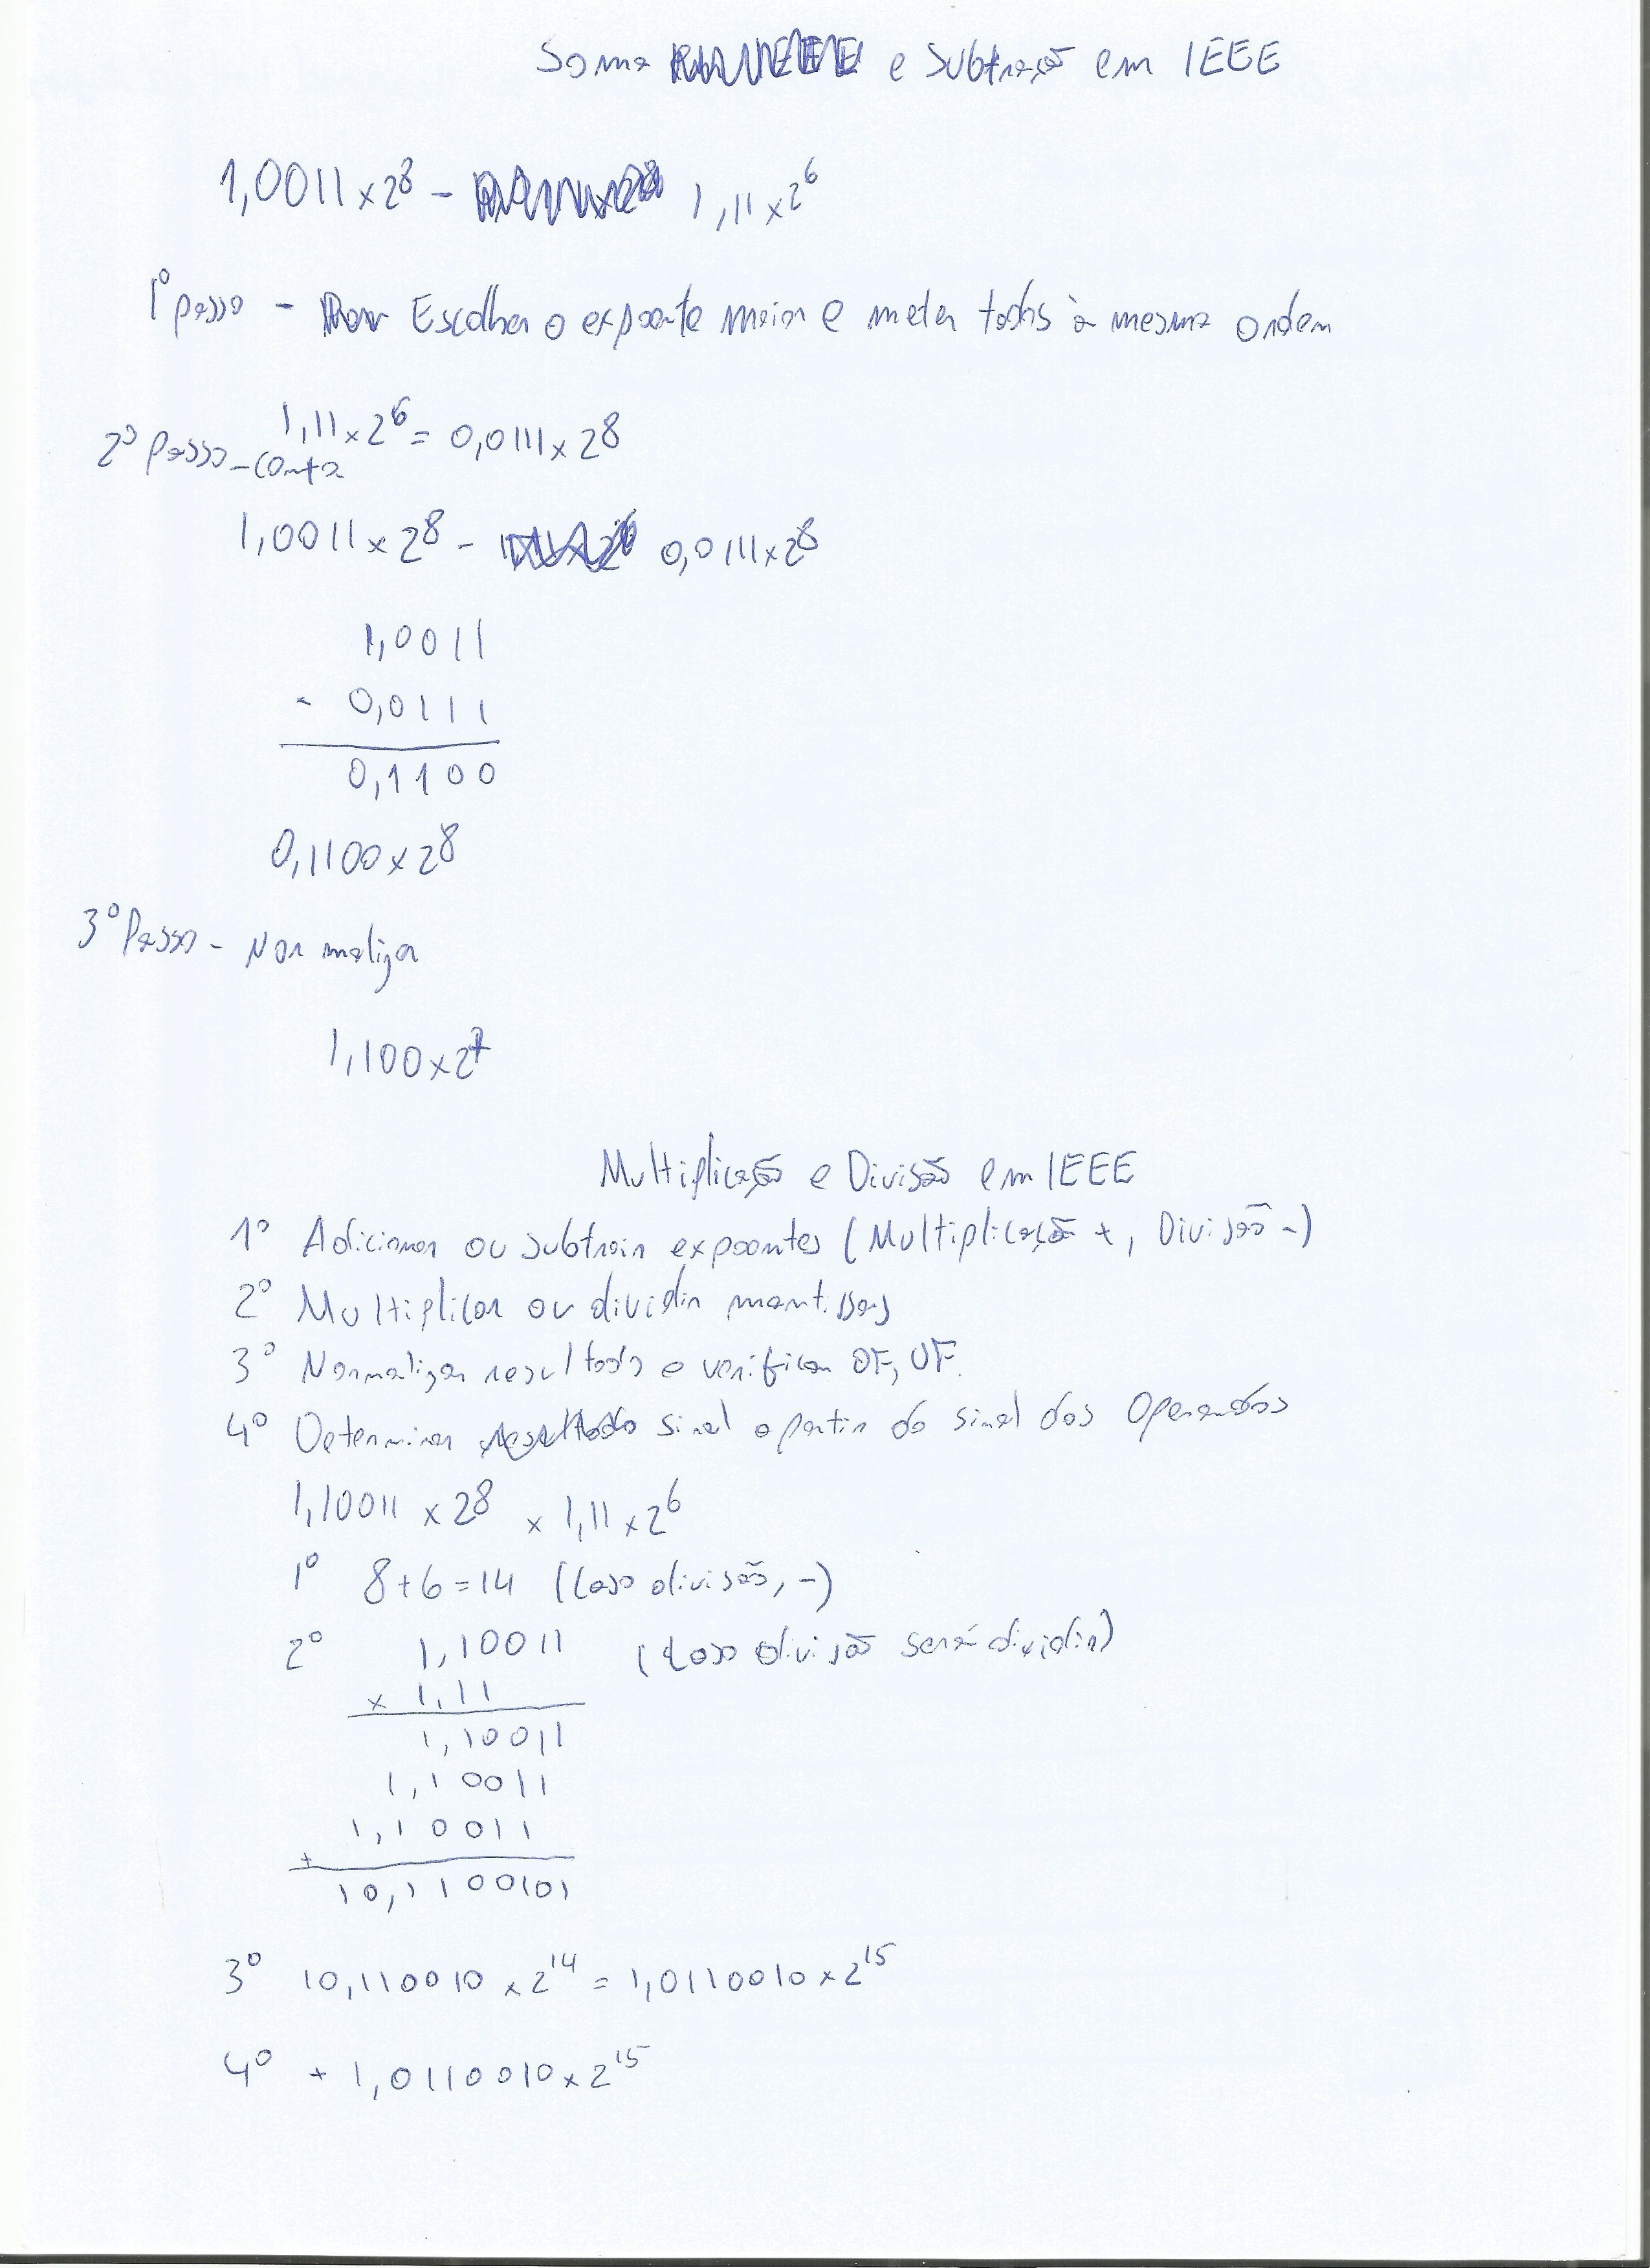 Soma e Subtração em IEEE
1,0011 x 2^8 - 1,11 x 2^6
1º passo - Escolher o expoente maior e meter todos à mesma ordem
1,11 x 2^6 = 0,0111 x 2^8
2º Passo - Conta
1,0011 x 2^8 - 0,0111 x 2^8
1,0011
- 0,0111
0,1100
0,1100 x 2^8
3º Passo - Normalizar
1,100 x 2^7
Multiplicação e Divisão em IEEE
1º Adicionar ou subtrair expoentes (Multiplicação +, Divisão -)
2º Multiplicar ou dividir mantissas
3º Normalizar resultado e verificar OF, UF.
4º Determinar sinal a partir do sinal dos Operandos
1,10011 x 2^8 x 1,11 x 2^6
1º 8+6=14 (Caso divisão, -)
2º 1,10011 (Caso divisão será dividir)
x 1,11
1,10011
1,10011
1,10011
+
10,1100101
3º 10,110010 x 2^14 = 1,0110010 x 2^15
4º + 1,0110010 x 2^15